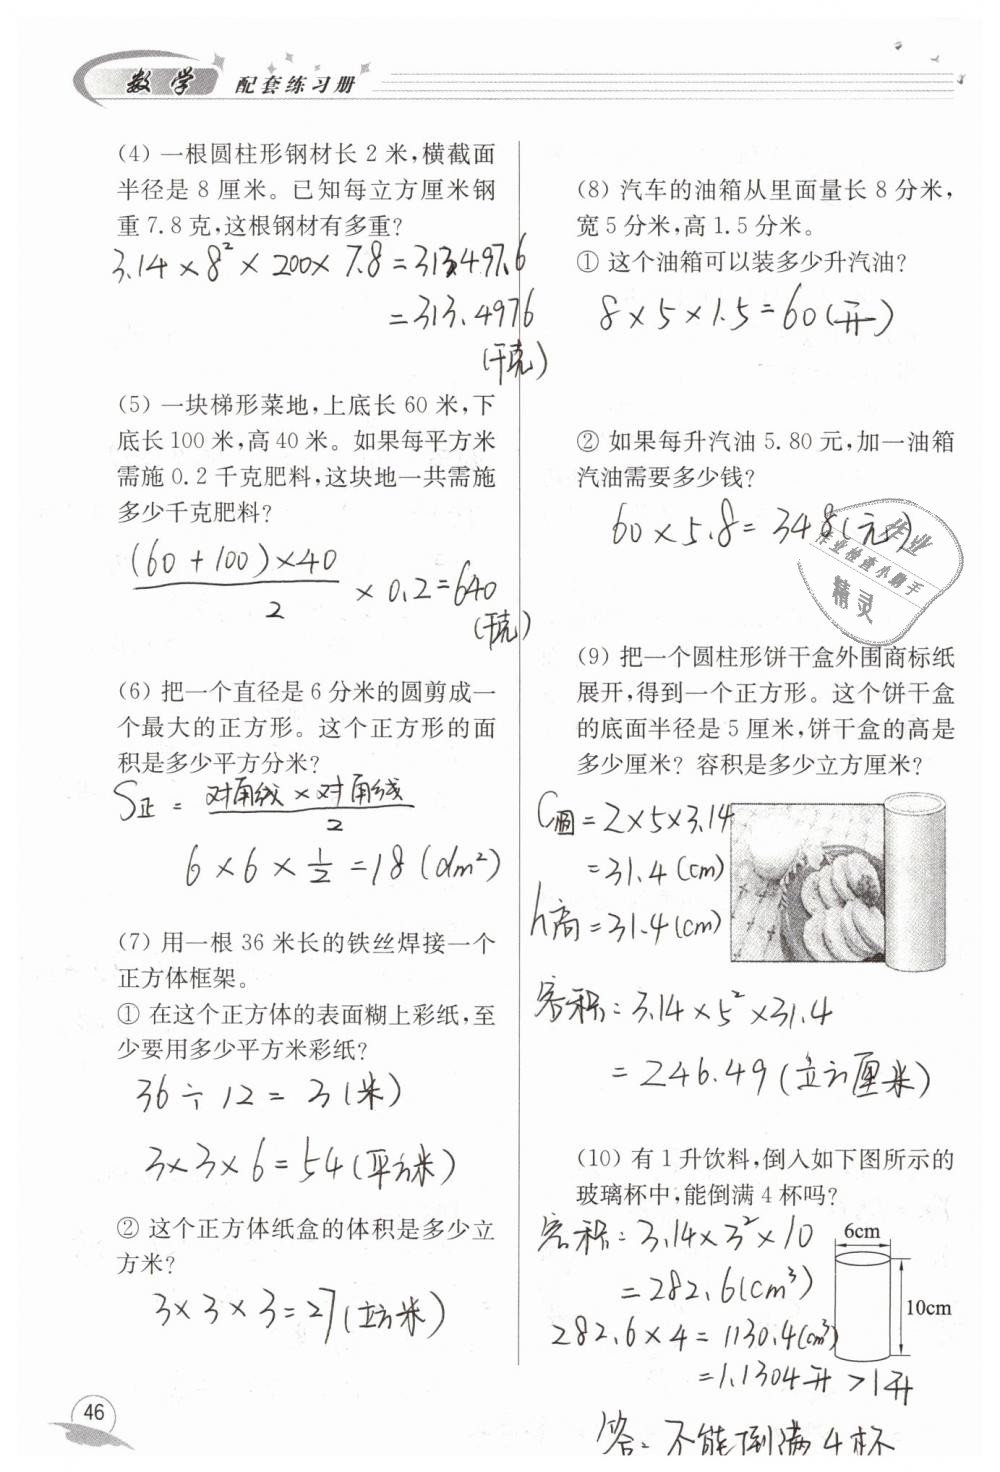 数学 配套练习册
(4) 一根圆柱形钢材长 2 米,横截面
半径是 8 厘米。已知每立方厘米钢
重 7.8 克,这根钢材有多重?
3.14×8²×200×7.8=313497.6
=313.4976
(千克)
(5) 一块梯形菜地,上底长 60 米,下
底长 100 米,高 40 米。如果每平方米
需施 0.2 千克肥料,这块地一共需施
多少千克肥料?
(60+100)×40
2
×0.2=640
(千克)
(6) 把一个直径是 6 分米的圆剪成一
个最大的正方形。这个正方形的面
积是多少平方分米?
S正 = 对角线×对角线
2
6×6×½=18(dm²)
(7) 用一根 36 米长的铁丝焊接一个
正方体框架。
① 在这个正方体的表面糊上彩纸,至
少要用多少平方米彩纸?
36÷12=3(米)
3×3×6=54(平方米)
② 这个正方体纸盒的体积是多少立
方米?
3×3×3=27(立方米)
46
(8) 汽车的油箱从里面量长 8 分米,
宽 5 分米,高 1.5 分米。
① 这个油箱可以装多少升汽油?
8×5×1.5=60(升)
② 如果每升汽油 5.80 元,加一油箱
汽油需要多少钱?
60×5.8=348(元)
作业
作业检查小助手
精灵
(9) 把一个圆柱形饼干盒外围商标纸
展开,得到一个正方形。这个饼干盒
的底面半径是 5 厘米,饼干盒的高是
多少厘米? 容积是多少立方厘米?
C圆=2×5×3.14
=31.4(cm)
h高=31.4(cm)
容积:3.14×5²×31.4
=246.49(立方厘米)
(10) 有 1 升饮料,倒入如下图所示的
玻璃杯中,能倒满 4 杯吗?
容积:3.14×3²×10
=282.6(cm³)
282.6×4=1130.4(cm³)
=1.1304升>1升
答:不能倒满4杯
6cm
10cm